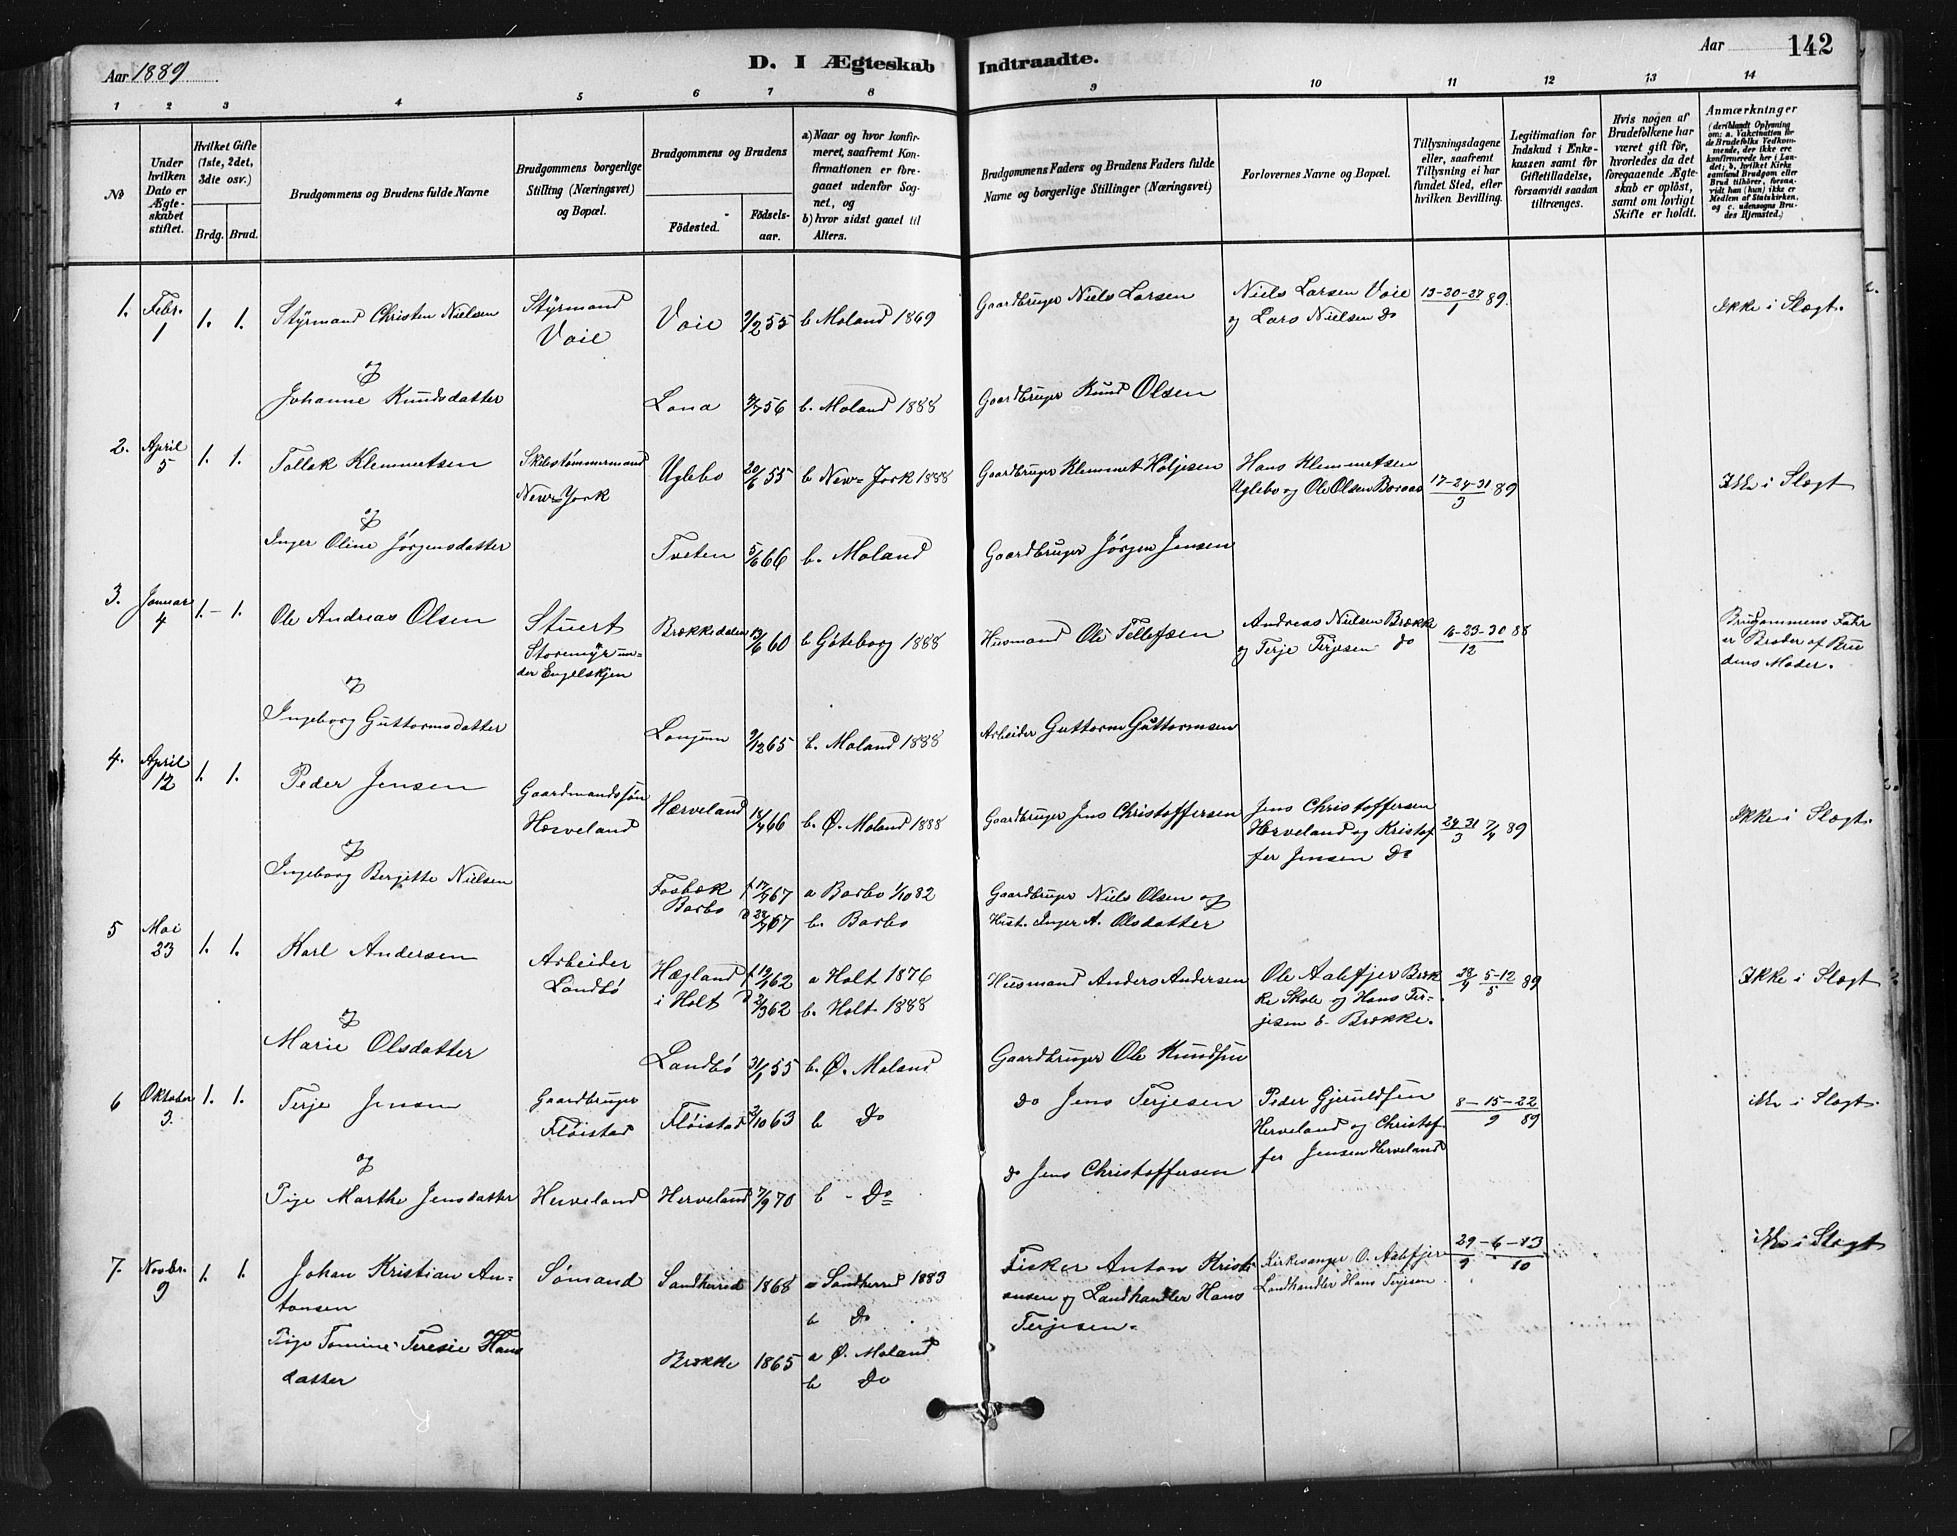 Aar 1889
D. I Ægteskab Indtraadte.
Aar
142
1 2 3 4 5 6 7 8 9 10 11 12 13 14
No
Under hvilken Dato er Ægteskabet stiftet.
Hvilket Gifte (1ste, 2det, 3die osv.)
Brdg. Brud.
Brudgommens og Brudens fulde Navne
Brudgommens borgerlige Stilling (Næringsvei) og Bopæl.
Brudgommens og Brudens
Födested. Födselsaar.
a) Naar og hvor konfirmeret, saafremt Konfirmationen er foregaaet udenfor Sognet, og
b) hvor sidst gaaet til Alters.
Brudgommens Faders og Brudens Faders fulde Navne og borgerlige Stillinger (Næringsvei)
Forlovernes Navne og Bopæl.
Tillysningsdagene eller, saafremt Tillysning ei har fundet Sted, efter hvilken Bevilling.
Legitimation for Indskud i Enkekassen samt for Giftetilladelse, forsaavidt saadan tiltrænges.
Hvis nogen af Brudefolkene har været gift för, hvorledes da det foregaaende Ægteskab er oplöst, samt om lovligt Skifte er holdt.
Anmærkninger (deriblandt Oplysning om: a. Vakcination for de Brudefolks Vedkommende, der ikke ere konfirmerede her i Landet; b. hvilket Kirkesamfund Brudgom eller Brud tilhörer, forsaavidt han (hun) ikke er Medlem af Statskirken, og c. udensogns Brudes Hjemsted.)
1. Febr. 1 1. 1. Styrmand Christen Nielsen Styrmand Voie Voie 9/2 55 b Moland 1869 Gaardbruger Niels Larsen Niels Larsen Voie og Lars Nielsen do 13-20-27/1 89. Ikke i Slægt.
og
Johanne Knudsdatter Lona 7/7 56 b. Moland 1888 Gaardbruger Knud Olsen
2. April 5 1. 1. Tallak Klemmetsen Skibstømmermand New=York Uglebo 20/6 55 b New=York 1888 Gaardbruger Klemmet Holjesen Hans Klemmetsen Uglebo og Ole Olsen Boraas 17-24-31/3 89 Ikke i Slægt
og
Inger Oline Jørgensdatter Tveten 5/6 66 b. Moland Gaardbruger Jørgen Jensen
3. Januar 4 1. - 1. Ole Andreas Olsen Stuert Storemyr under Engelskjen Brækkedalen 13/6 60 b Göteborg 1888 Husmand Ole Tellefsen Andreas Nielsen Brække og Terje Terjesen do 16-23-30/12 88 Brudgommens Fader er Broder af Brudens Moder.
og
Ingeborg Guttormsdatter Longum 9/12 65 b. Moland 1888 Arbeider Guttorm Guttormsen
4. April 12 1. 1. Peder Jensen Gaardmandssøn Hærveland Hærveland 18/4 66 b. Ø. Moland 1888 Gaardbruger Jens Christoffersen Jens Christoffersen Herveland og Kristoffer Jensen do 24-31/3 7/4 89 Ikke i Slægt.
og
Ingeborg Bergitte Nielsen Fosbæk Barbo f 17/7 67 d 28/7 67 a Barbo 1/10 82 b. Barbo Gaardbruger Niels Olsen og Hust. Inger A. Olsdatter
5 Mai 23 1. 1. Karl Andersen Arbeider Landbø Hægland i Holt 62 62 a Holt 1876 b. Holt 1888 Husmand Anders Andersen Ole Aalefjer Brække Skole og Hans Terjesen E. Brække. 28/4 5-12/5 89 Ikke i Slægt
og
Marie Olsdatter Landbø 31/1 55 b. Ø. Moland Gaardbruger Ole Knudsen
6 Oktober 3. 1. 1. Terje Jensen Gaardbruger Fløistad Fløistad 2/10 63 b do do Jens Terjesen Peder Gjeruldsen Herveland og Christoffer Jensen Herveland 8-15-22/9 89 ikke i Slægt.
og
Pige Marthe Jensdatter Herveland Herveland 7/9 70 b - do do Jens Christoffersen
7. Novbr. 9 1. 1. Johan Kristian Antonsen Sømand Sandherred 1868 a Sandherred 1883 b do Fisker Anton Kristiansen og Landhandler Hans Terjesen. Kirkesanger O. Aalefjer Landhandler Hans Terjesen 29/9 - 6 - 13/10 ikke i Slægt
Pige Tomine Teresie Hansdatter Brække 1865 a Ø. Moland b do